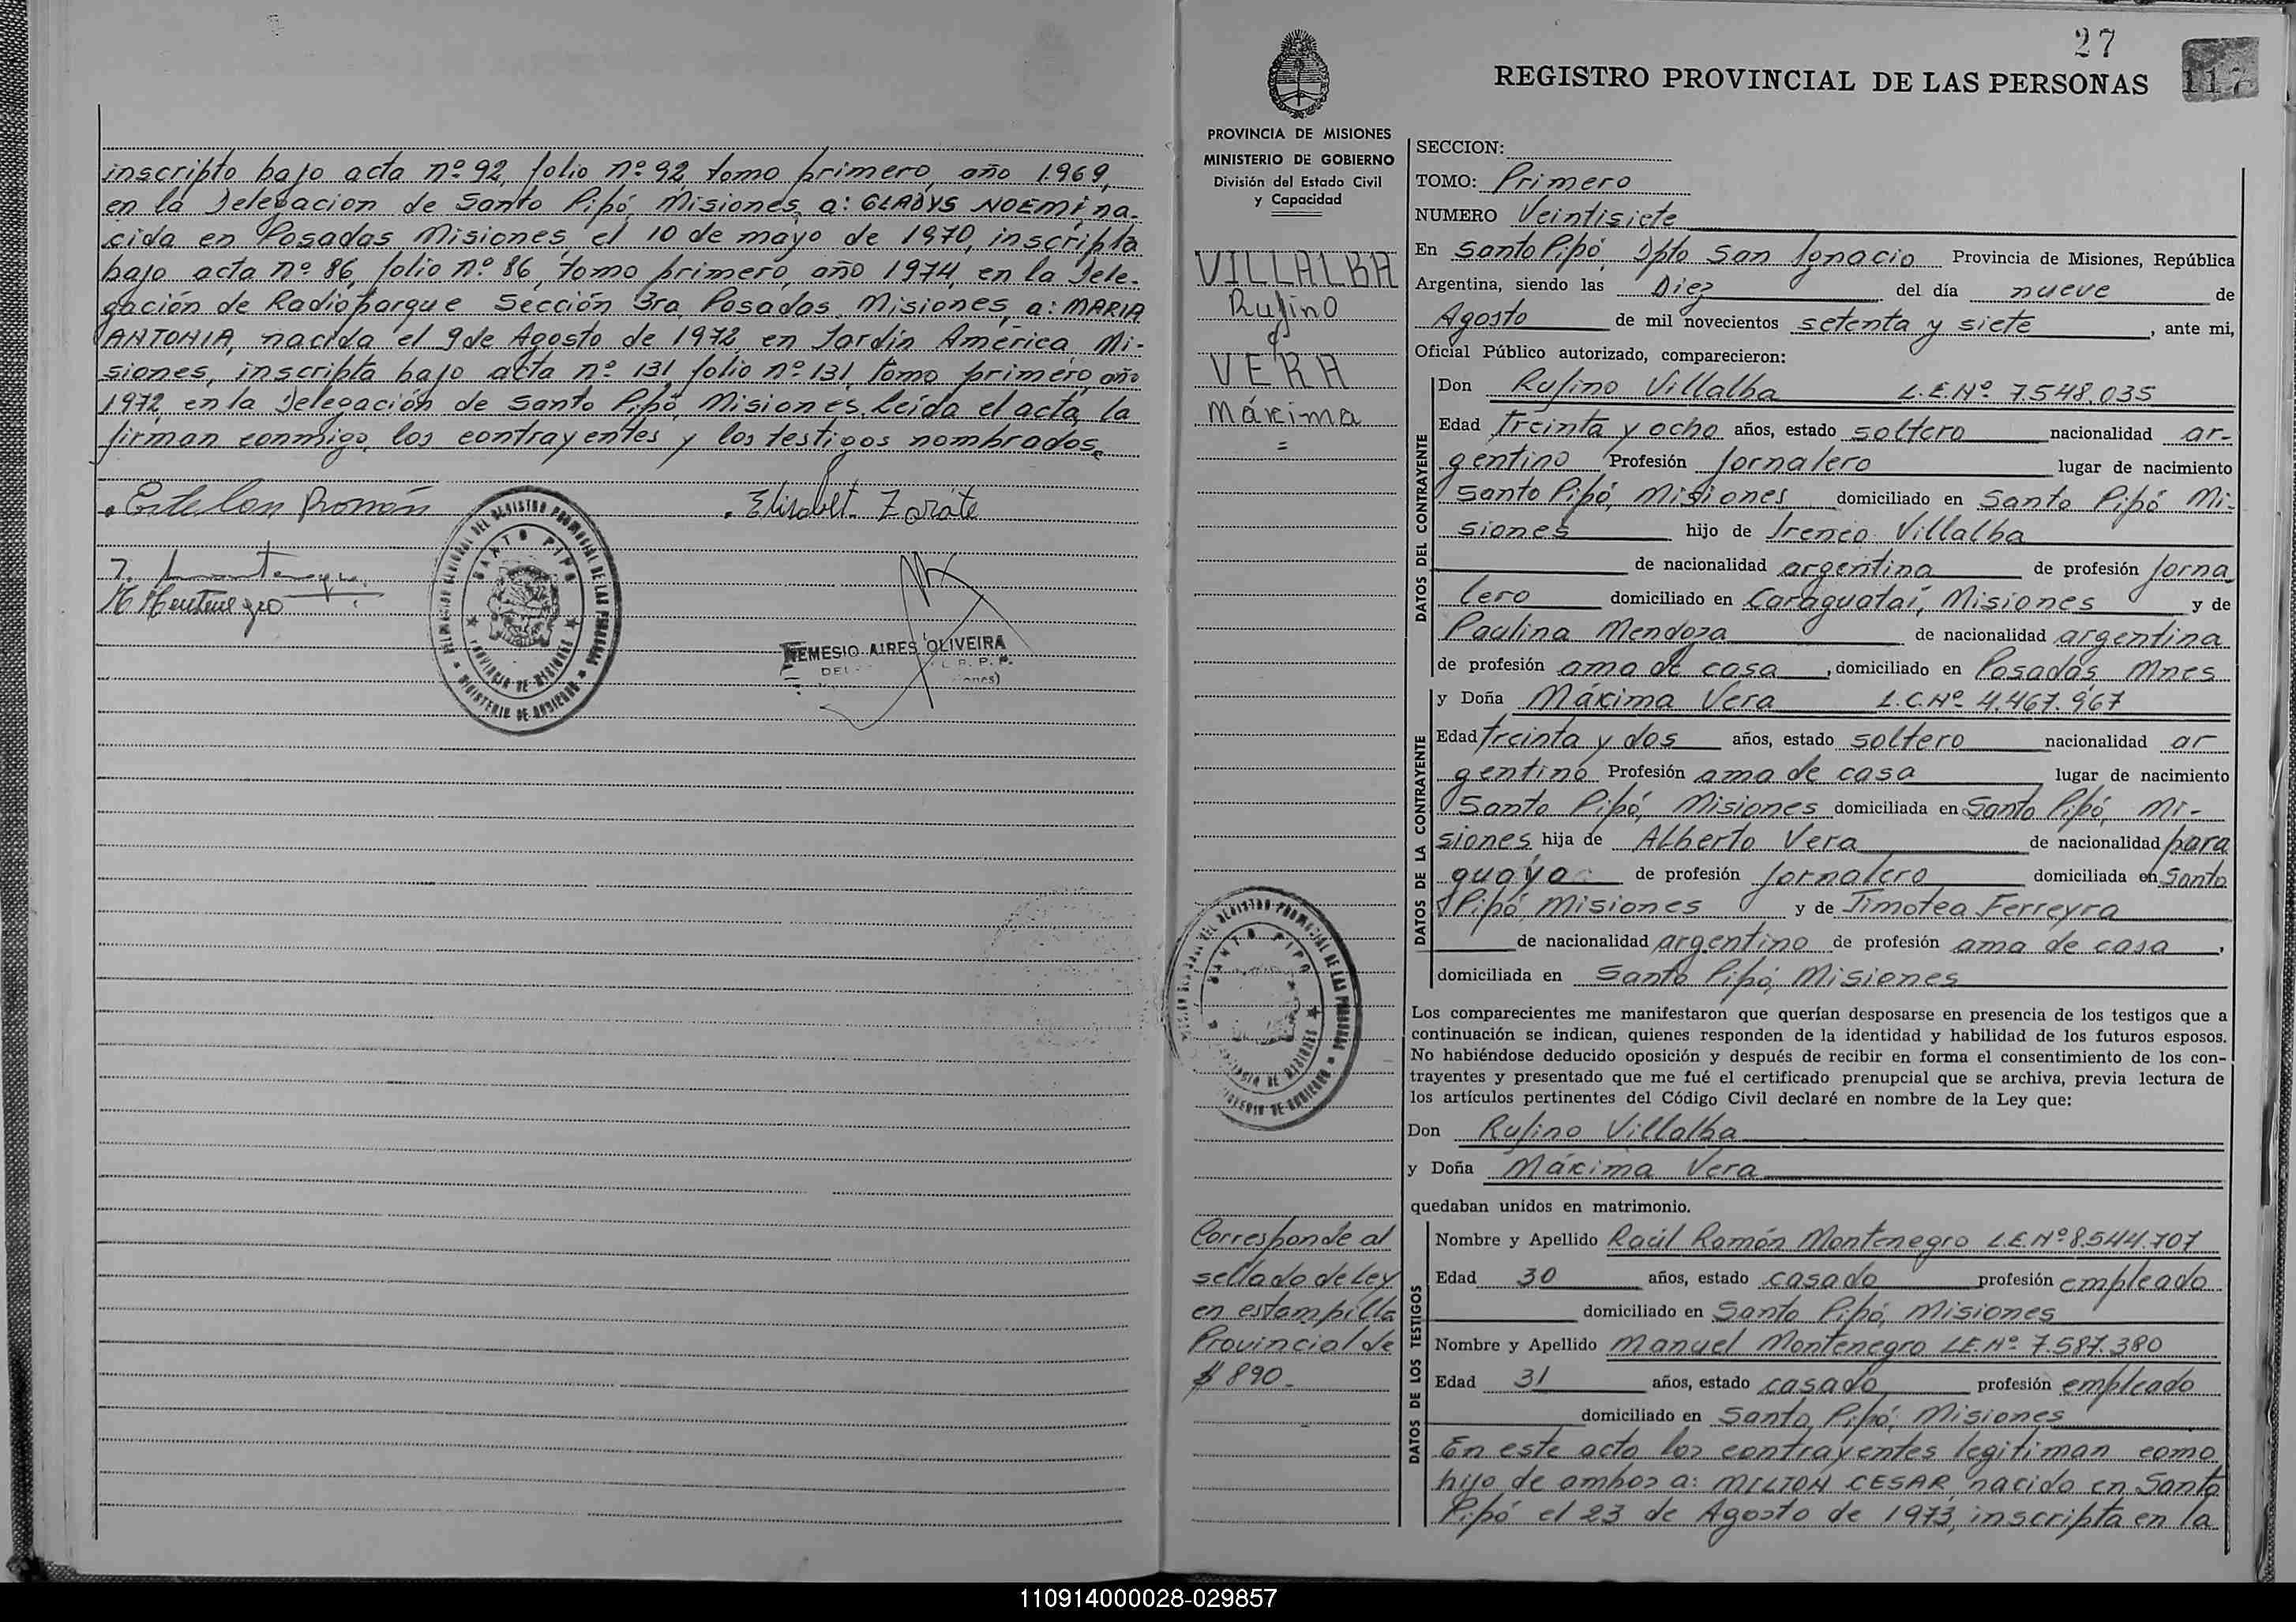 inscripto bajo acta nº 92, folio nº 92 tomo primero, año 1969,
en la Delegacion de Santo Pipó, Misiones, a: GLADYS NOEMI, na-
cida en Posadas Misiones, el 10 de mayo de 1970, inscripta
bajo acta nº 86, folio nº 86, tomo primero, año 1974, en la Dele-
gación de Radioparque Sección 3ra, Posadas, Misiones, a: MARIA
ANTONIA, nacida el 9 de Agosto de 1972, en Jardín América, Mi-
siones, inscripta bajo acta nº 131, folio nº 131, tomo primero, año
1972, en la Delegación de Santo Pipó, Misiones. Leída el acta, la
firman conmigo, los contrayentes y los testigos nombrados.
Elisabet Zarate
M Montenegro
DELEGACION SECCIONAL DEL REGISTRO PROVINCIAL DE LAS PERSONAS
SANTO PIPO
PROVINCIA DE MISIONES
MINISTERIO DE GOBIERNO
NEMESIO AIRES OLIVEIRA
27
REGISTRO PROVINCIAL DE LAS PERSONAS
117
PROVINCIA DE MISIONES
MINISTERIO DE GOBIERNO
División del Estado Civil
y Capacidad
VILLALBA
Rufino
y
VERA
Máxima
=
SECCION:
TOMO: Primero
NUMERO Veintisiete
En Santo Pipó, Dpto San Ignacio Provincia de Misiones, República
Argentina, siendo las Diez del día nueve de
Agosto de mil novecientos setenta y siete, ante mi,
Oficial Público autorizado, comparecieron:
DATOS DEL CONTRAYENTE
Don Rufino Villalba L.E.Nº 7.548.035
Edad Treinta y ocho años, estado soltero nacionalidad ar-
gentino Profesión Jornalero lugar de nacimiento
Santo Pipó, Misiones domiciliado en Santo Pipó Mi-
siones hijo de Ireneo Villalba
de nacionalidad argentina de profesión Jorna
lero domiciliado en Caraguatai, Misiones y de
Paulina Mendoza de nacionalidad argentina
de profesión ama de casa, domiciliado en Posadas Mnes
DATOS DE LA CONTRAYENTE
y Doña Máxima Vera L.C.Nº 4.467.967
Edad treinta y dos años, estado soltero nacionalidad ar
gentino Profesión ama de casa lugar de nacimiento
Santo Pipó, Misiones domiciliada en Santo Pipó, Mi-
siones hija de Alberto Vera de nacionalidad para
guaya de profesión Jornalero domiciliada en Santo
Pipó, Misiones y de Timotea Ferreyra
de nacionalidad argentino de profesión ama de casa,
domiciliada en Santo Pipó, Misiones
Los comparecientes me manifestaron que querían desposarse en presencia de los testigos que a
continuación se indican, quienes responden de la identidad y habilidad de los futuros esposos.
No habiéndose deducido oposición y después de recibir en forma el consentimiento de los con-
trayentes y presentado que me fué el certificado prenupcial que se archiva, previa lectura de
los artículos pertinentes del Código Civil declaré en nombre de la Ley que:
Don Rufino Villalba
y Doña Máxima Vera
quedaban unidos en matrimonio.
Corresponde al
sellado de Ley
en estampilla
Provincial de
$ 890.-
DATOS DE LOS TESTIGOS
Nombre y Apellido Raúl Ramón Montenegro L.E.Nº 8.544.707
Edad 30 años, estado casado profesión empleado
domiciliado en Santo Pipó, Misiones
Nombre y Apellido Manuel Montenegro L.E.Nº 7.587.380
Edad 31 años, estado casado profesión empleado
domiciliado en Santo Pipó, Misiones
En este acto los contrayentes legitiman como
hijo de ambos a: MILTON CESAR, nacido en Santo
Pipó el 23 de Agosto de 1973, inscripta en la
110914000028-029857